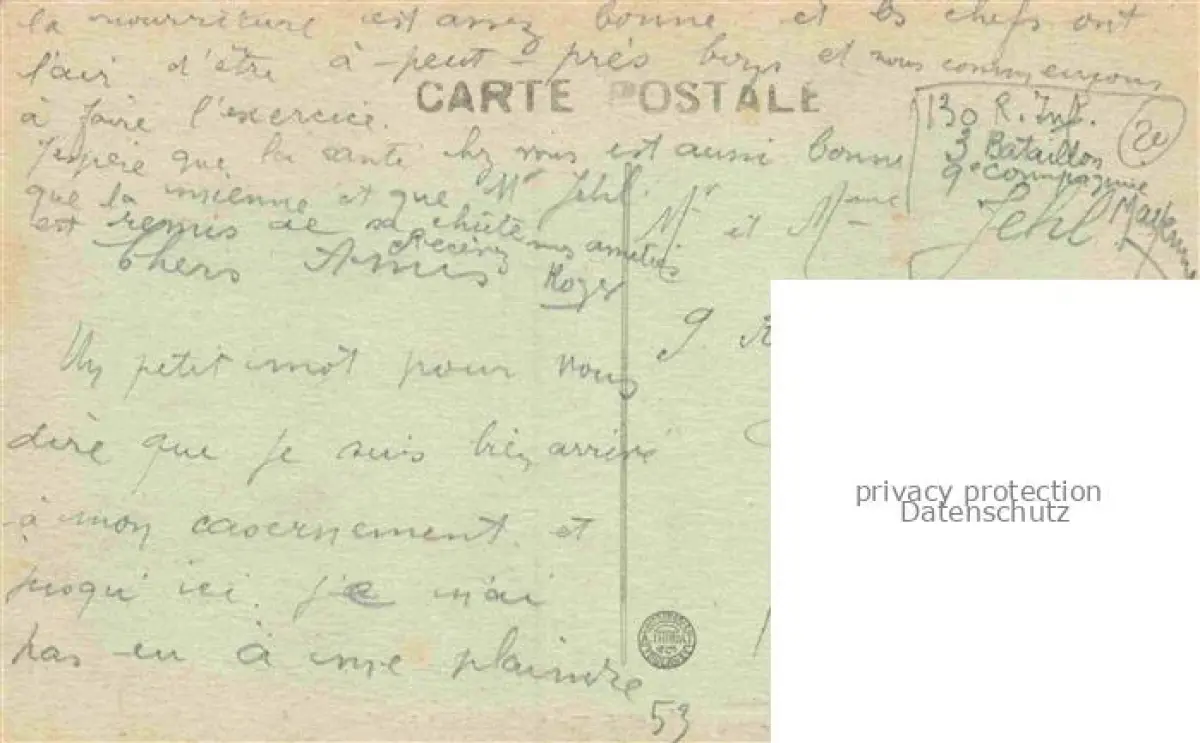 la nourriture est assez bonne et les chefs ont
l'air d'être à-peut-près bons et nous commençons
CARTE POSTALE
à faire l'exercice.
J'espère que la santé chez vous est aussi bonne
que la mienne et que Mr Jehl.
est remis de sa chûte
Recevez mes amitiés
Roger
Chers Amis
Un petit mot pour vous
dire que je suis bien arrivé
à mon casernement et
jusqu'ici je n'ai
pas eu à me plaindre
130 R. Inf.
3 Bataillon
9e Compagnie
Mayenne
20
Mr et Mme Jehl
9.
53
privacy protection
Datenschutz